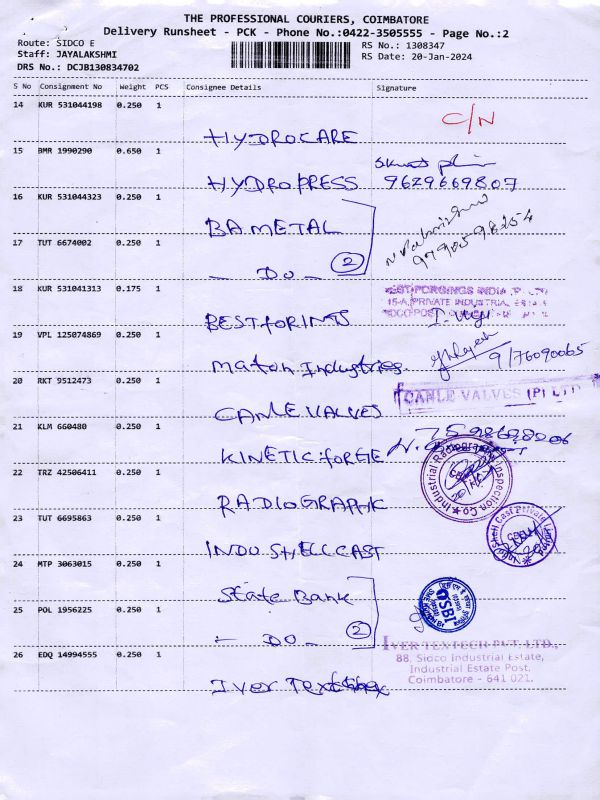 THE PROFESSIONAL COURIERS, COIMBATORE
Delivery Runsheet - PCK - Phone No.:0422-3505555 - Page No.:2
Route: SIDCO E
RS No.: 1308347
Staff: JAYALAKSHMI
RS Date: 20-Jan-2024
DRS No.: DCJB130834702
S No Consignment No Weight PCS Consignee Details Signature
14 KUR 531044198 0.250 1
C/N
HYDROCARE
15 BMR 1990290 0.650 1
HYDROPRESS 9629669807
16 KUR 531044323 0.250 1
BA METAL
17 TUT 6674002 0.250 1
- DO - 2
18 KUR 531041313 0.175 1
BEST FORGINGS INDIA P. LTD
15-A, PRIVATE INDUSTRIAL ESTATE
BESTFORINTS
19 VPL 125074869 0.250 1
Maton Industries 9176090065
20 RKT 9512473 0.250 1
CANLE VALVES (P) LTD
CANLE VALVES
21 KLM 660480 0.250 1
KINETIC FORGE
22 TRZ 42506411 0.250 1
Industrial Radiography Inspection Co
RADIOGRAPHIC
23 TUT 6695863 0.250 1
Indoshell Cast Private Limited
INDO SHELL CAST
24 MTP 3063015 0.250 1
State Bank
25 POL 1956225 0.250 1
SBI
- DO - 2
26 EDQ 14994555 0.250 1
IVER TEXTECH PVT. LTD.,
88, Sidco Industrial Estate,
Industrial Estate Post,
Coimbatore - 641 021.
Iver